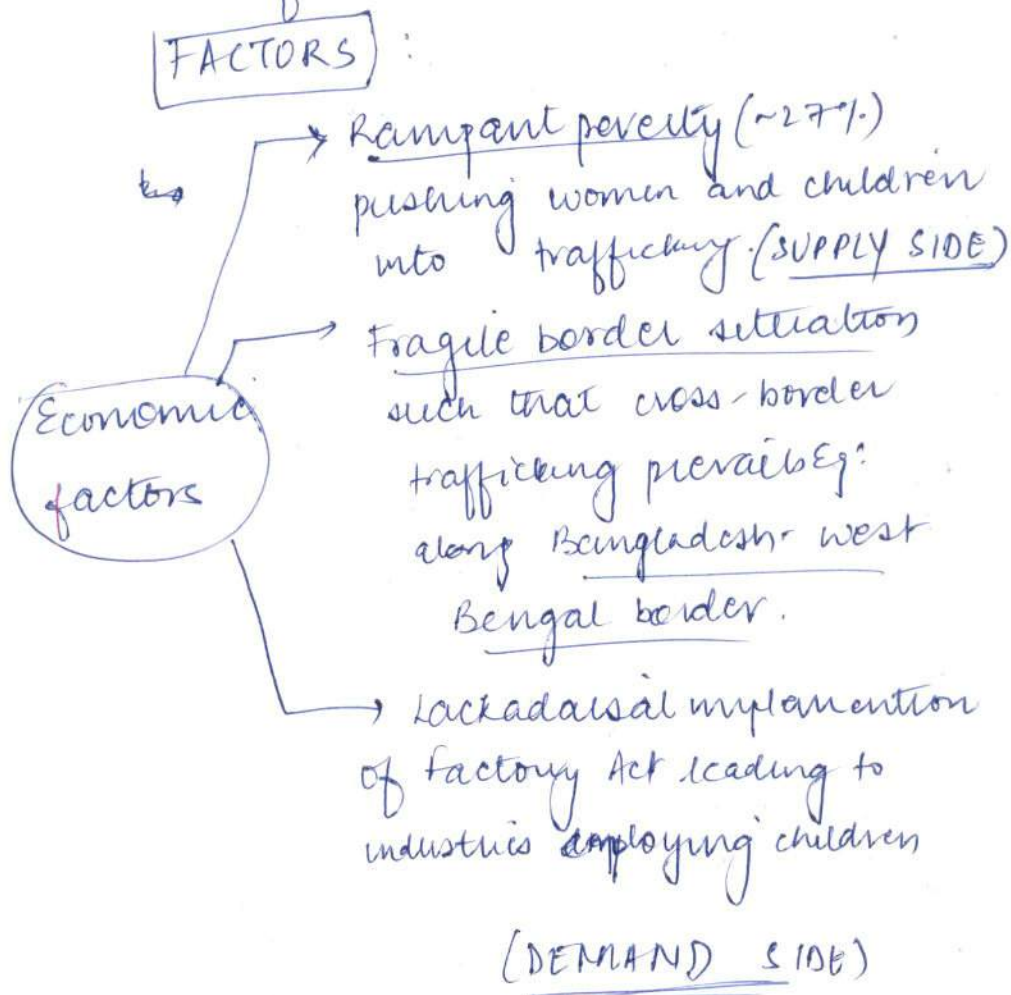 FACTORS :
Rampant poverty (~27%)
pushing women and children
into trafficking. (SUPPLY SIDE)
Fragile border situation
such that cross-border
Economic
factors
trafficking prevails Eg:
along Bangladesh- west
Bengal border.
Lackadaisal implemention
of Factory Act leading to
industries employing children
(DEMAND SIDE)